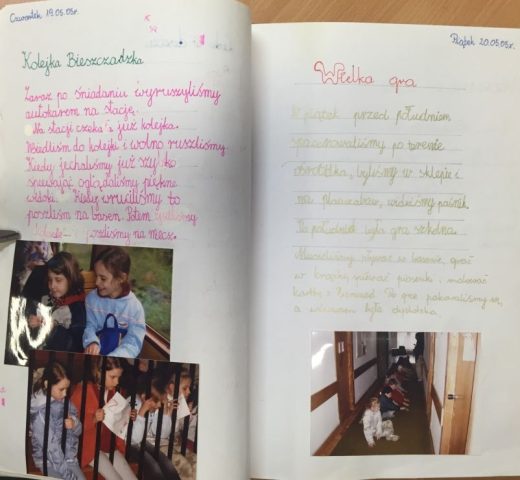 Czwartek 19.05.05r.
Kolejka Bieszczadzka
Zaraz po śniadaniu wyruszyliśmy
autokarem na stację.
Na stacji czekała już kolejka.
Wsiedliśmy do kolejki i wolno ruszliśmy.
Kiedy jechaliśmy już szybko
śpiewając oglądaliśmy piękne
widoki. Kiedy wruciliśmy to
poszliśmy na basen. Potem
i poszliśmy na mecz.
Piątek 20.05.05r.
Wielka gra
W piątek przed południem
spacerowaliśmy po terenie
ośrodka, byliśmy w sklepie i
na placu zabaw, widzieliśmy
Po południu była gra szkolna.
Musieliśmy pływać w basenie, grać
w śpiewać piosenki i malować
kartkę z Po grze pakowaliśmy się,
a wieczorem była dyskoteka.